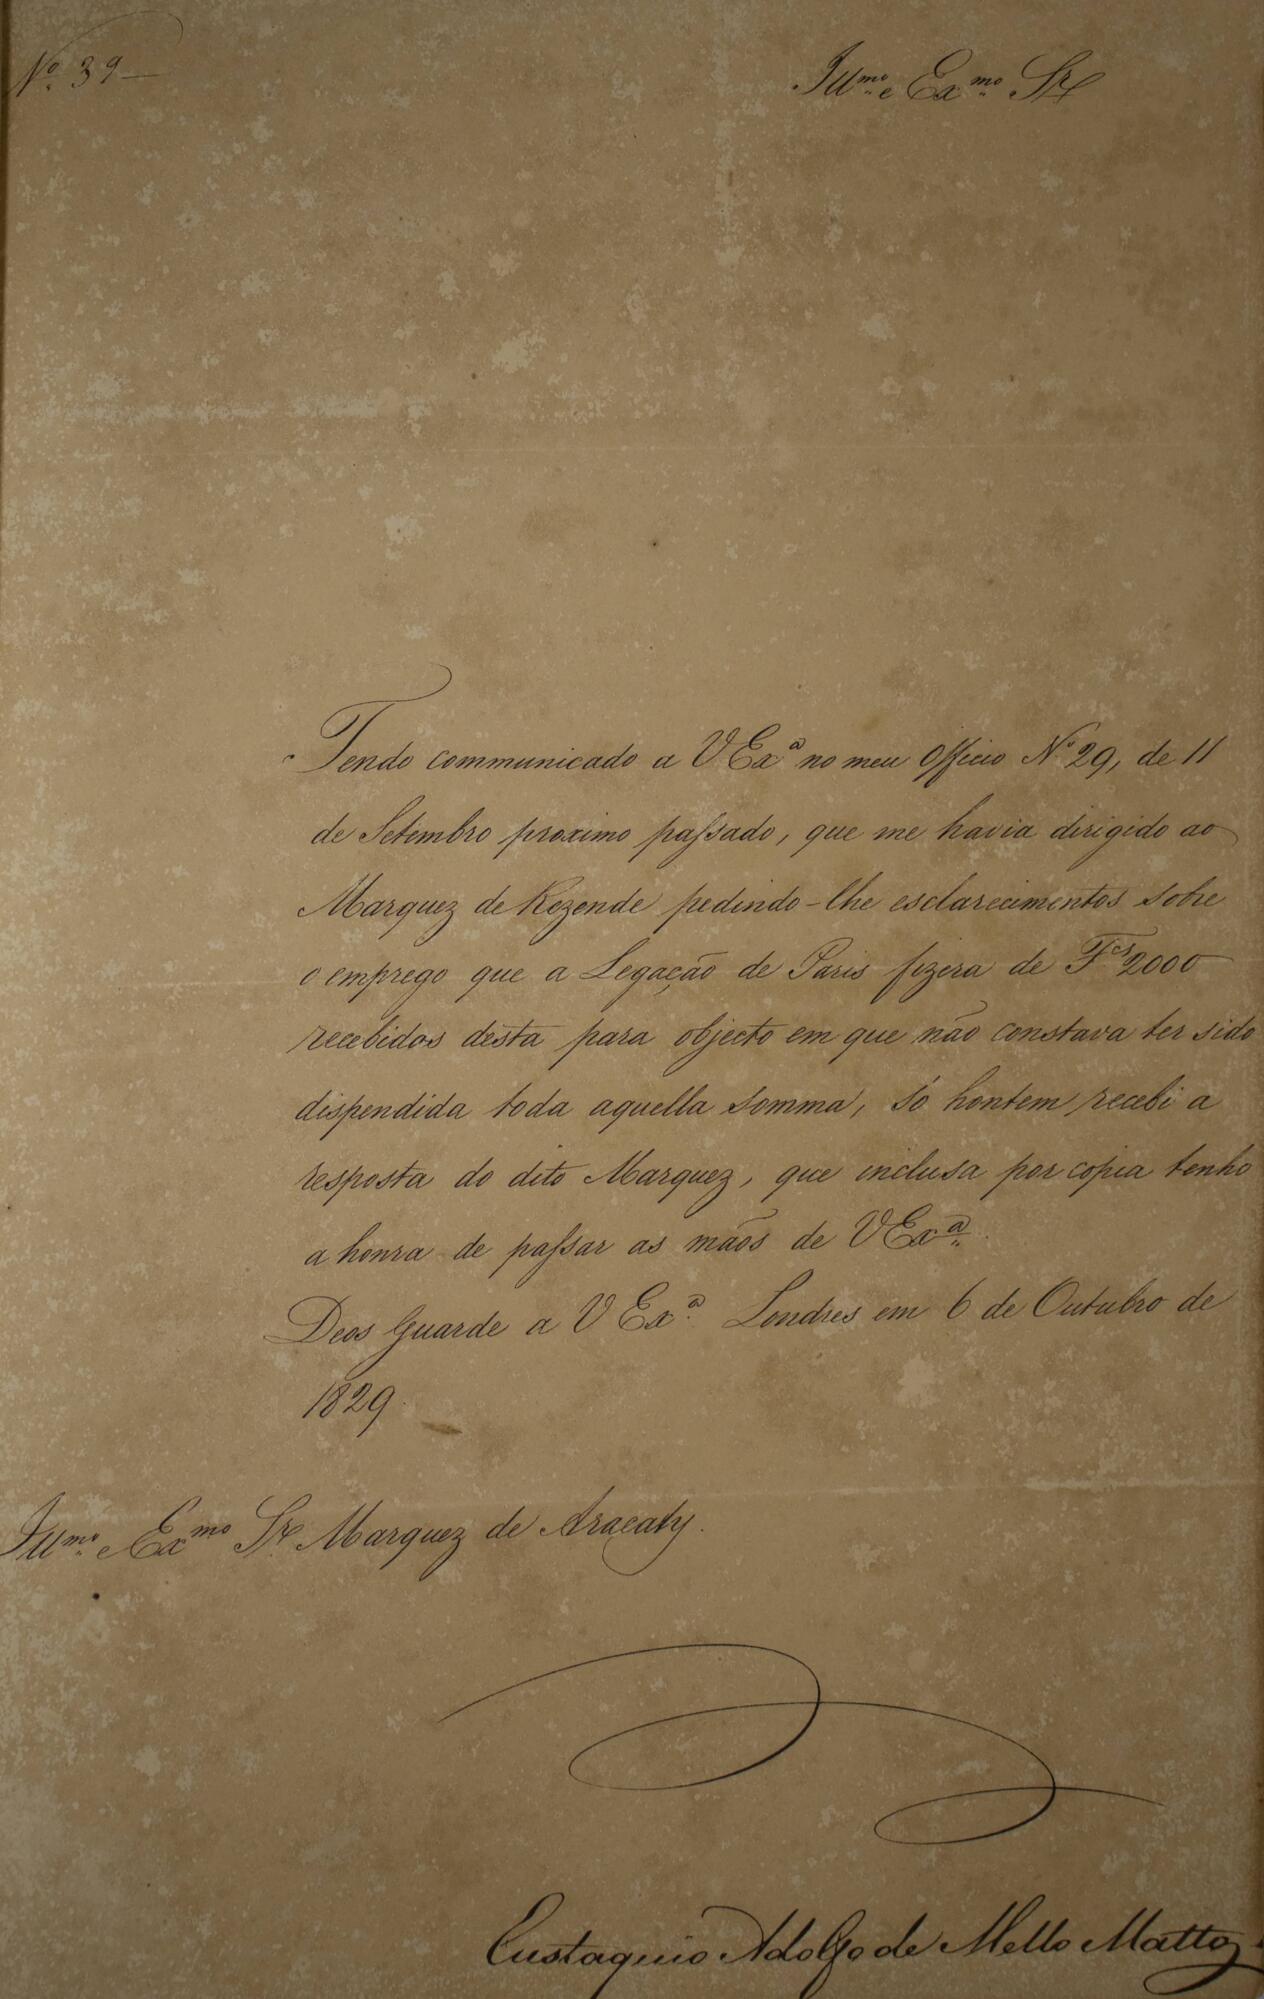 Nº 39
Illmo e Exmo Sr
Tendo communicado a V Exª no meu Officio Nº 29, de 11
de Setembro proximo passado, que me havia dirigido ao
Marquez de Rezende pedindo-lhe esclarecimentos sobre
o emprego que a Legação de Paris fizera de Fcs 2000
recebidos desta para objecto em que não constava ter sido
dispendida toda aquella somma, só hontem recebi a
resposta do dito Marquez, que inclusa por copia tenho
a honra de passar as mãos de V Exª
Deos Guarde a V Exª. Londres em 6 de Outubro de
1829.
Illmo e Exmo Sr Marquez de Aracaty.
Eustaquio Adolfo de Mello Mattos